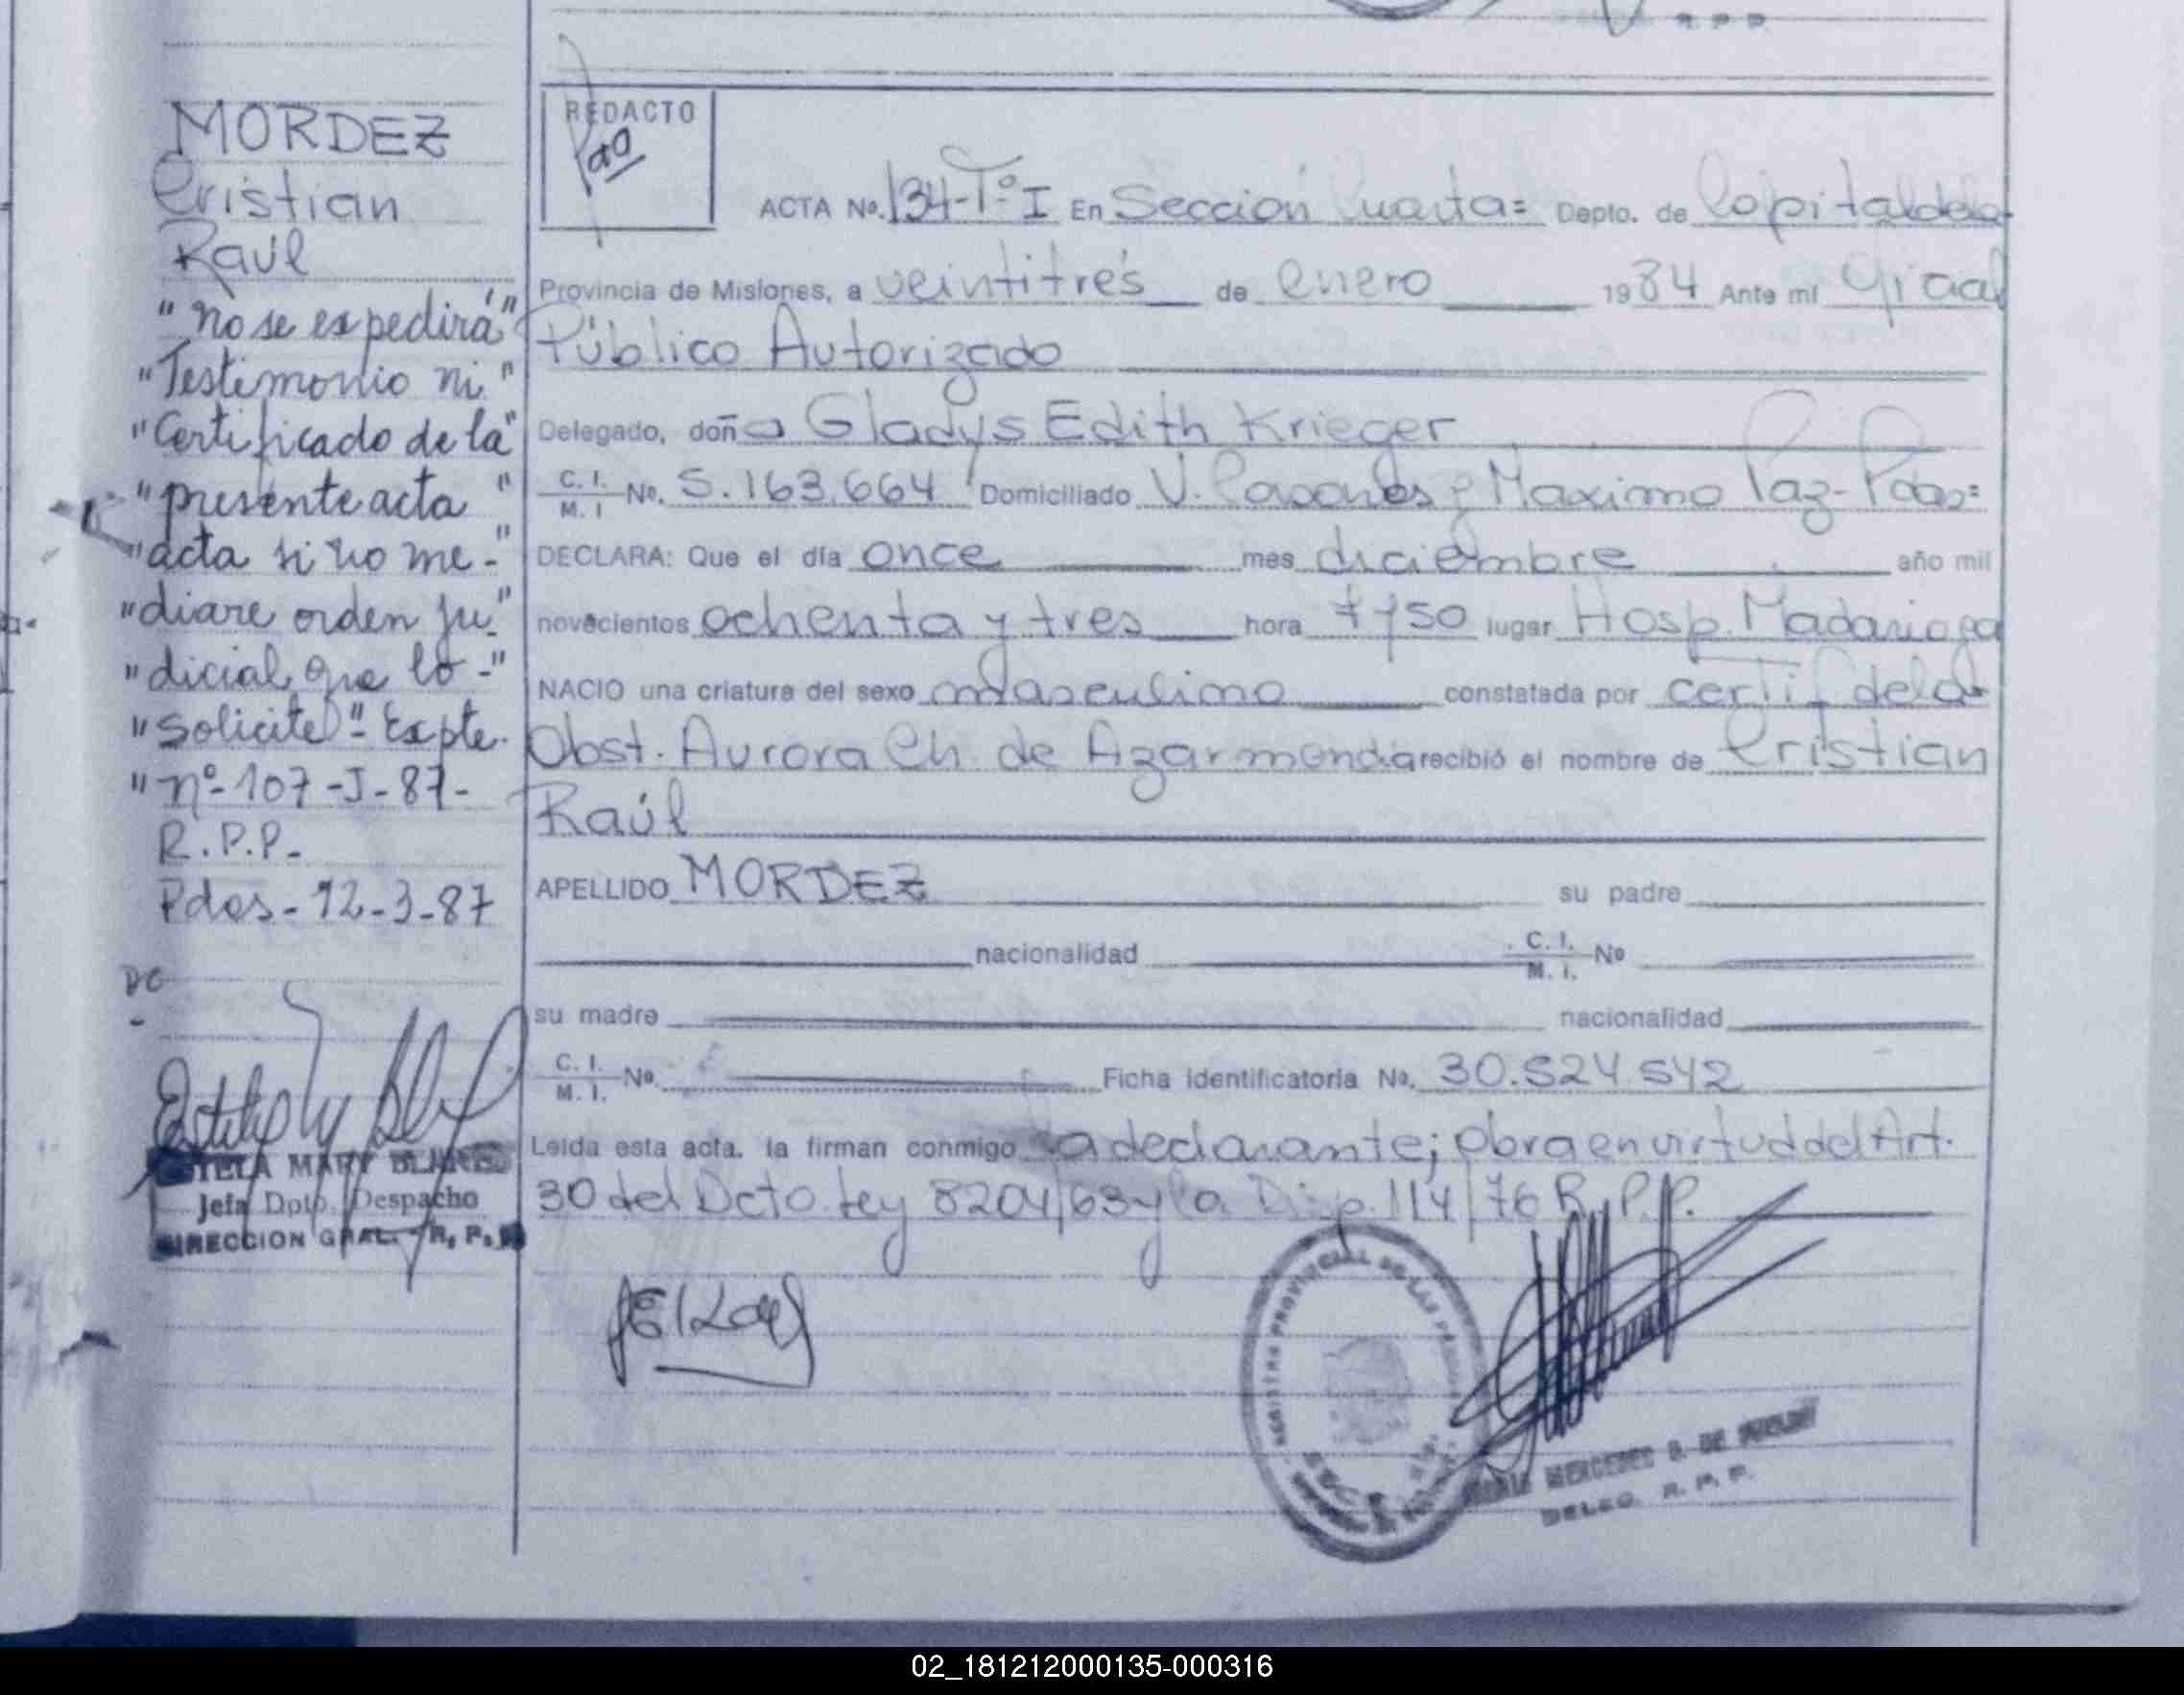 R. P. P.
MORDEZ
Cristian
Raúl
"no se expedirá"
"Testimonio ni"
"Certificado de la"
"presente acta"
"acta si no me-"
"diare orden ju"
"dicial que lo-"
"solicite"- Expte.
"nº-107-J-87-
R.P.P.-
Pdas-12-3-87
DC
ESTELA MARY
Jefa Dpto. Despacho
DIRECCION GRAL. R. P. P.
REDACTO
ACTA No. 134-Tº I En Sección Cuarta= Depto. de Capital de la
Provincia de Misiones, a veintitrés de enero 1984 Ante mí Oficial
Público Autorizado
Delegado, doña Gladys Edith Krieger
C. I. M. I No. 5.163.664 Domiciliado V. Casares y Maximo Paz-Pdas=
DECLARA: Que el día once mes diciembre año mil
novecientos ochenta y tres hora 7,50 lugar Hosp. Madariaga
NACIO una criatura del sexo masculino constatada por certif de la
Obst. Aurora Ch. de Azarmendia recibió el nombre de Cristian
Raúl
APELLIDO MORDEZ su padre
nacionalidad C. I. M. I. No
su madre nacionalidad
C. I. M. I. No. Ficha identificatoria No. 30.524.542
Leída esta acta. la firman conmigo la declarante; obra en virtud del Art.
30 del Dcto. Ley 8204/63 y la Disp. 114/76 R.P.P.
REGISTRO PROVINCIAL DE LAS
MERCEDES B. DE
DELEG. R. P. P.
02_181212000135-000316